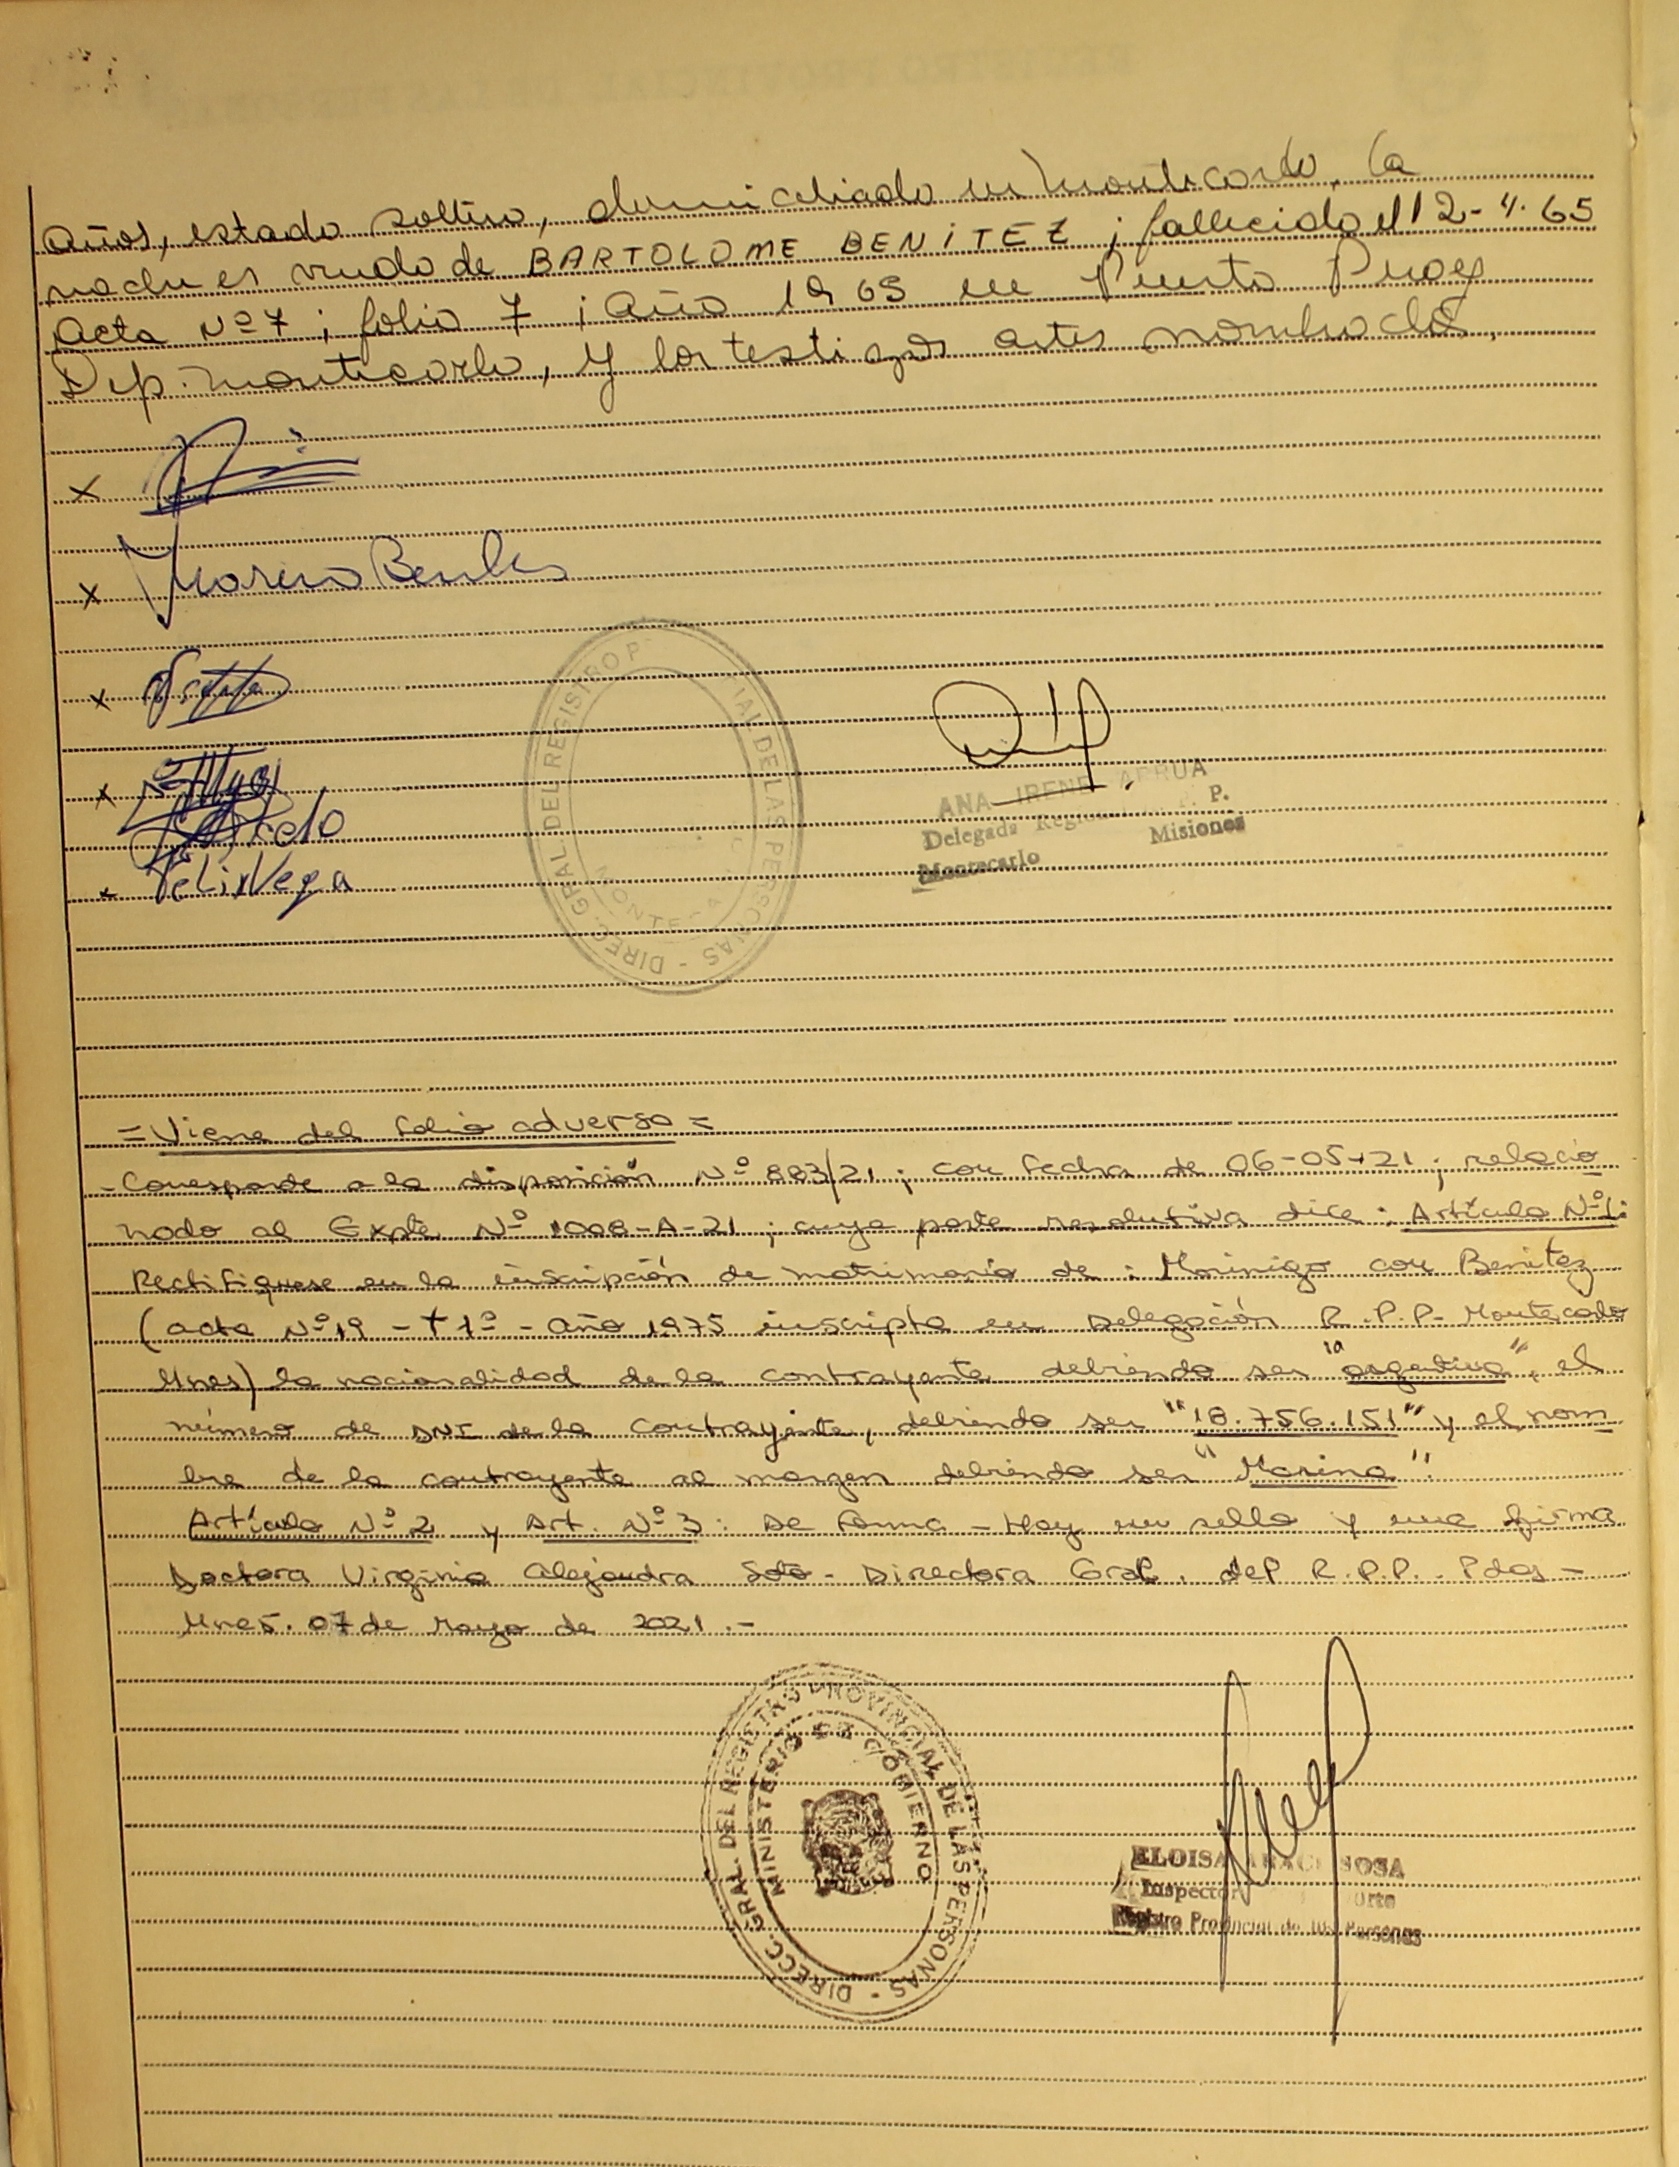 años, estado soltero, domiciliado en Montecarlo, la
madre es viuda de BARTOLOME BENITEZ ; fallecido el 12-4-65
Acta Nº 7 ; folio 7 ; año 1965 en Puerto
Dep. Montecarlo, y los testigos antes nombrados.
x
x Marina Benitez
x
x
x Felix Vega
DIREC. GRAL. DEL REGISTRO P IAL DE LAS PERSONAS -
MONTECA
ANA IRENE APRUA
Delegada P.
Montecarlo Misiones
= Viene del folio adverso =
- Corresponde a la disposición Nº 883/21 ; con fecha de 06-05-21 ; relacio
nado al Expte Nº 1008-A-21 ; cuya parte resolutiva dice : Artículo Nº 1:
Rectifiquese en la inscripción de matrimonio de : Morinigo con Benitez
(acta Nº 19 - t 1º - año 1975 inscripta en Delegación R.P.P. Montecarlo
Mnes) la nacionalidad de la contrayente debiendo ser "argentina", el
número de DNI de la contrayente, debiendo ser "18.756.151" y el nom
bre de la contrayente al margen debiendo ser "Marina".
Artículo Nº 2 y Art. Nº 3 : De forma - Hay un sello y una firma
Doctora Virginia Alejandra Soto - Directora Gral. del R.P.P. Pdas -
Mnes. 07 de Mayo de 2021.-
DIRECC. GRAL. DEL REGISTRO PROVINCIAL DE LAS PERSONAS -
MINISTERIO DE GOBIERNO
ELOISA SOSA
Inspector
Registro Provincial de las Personas